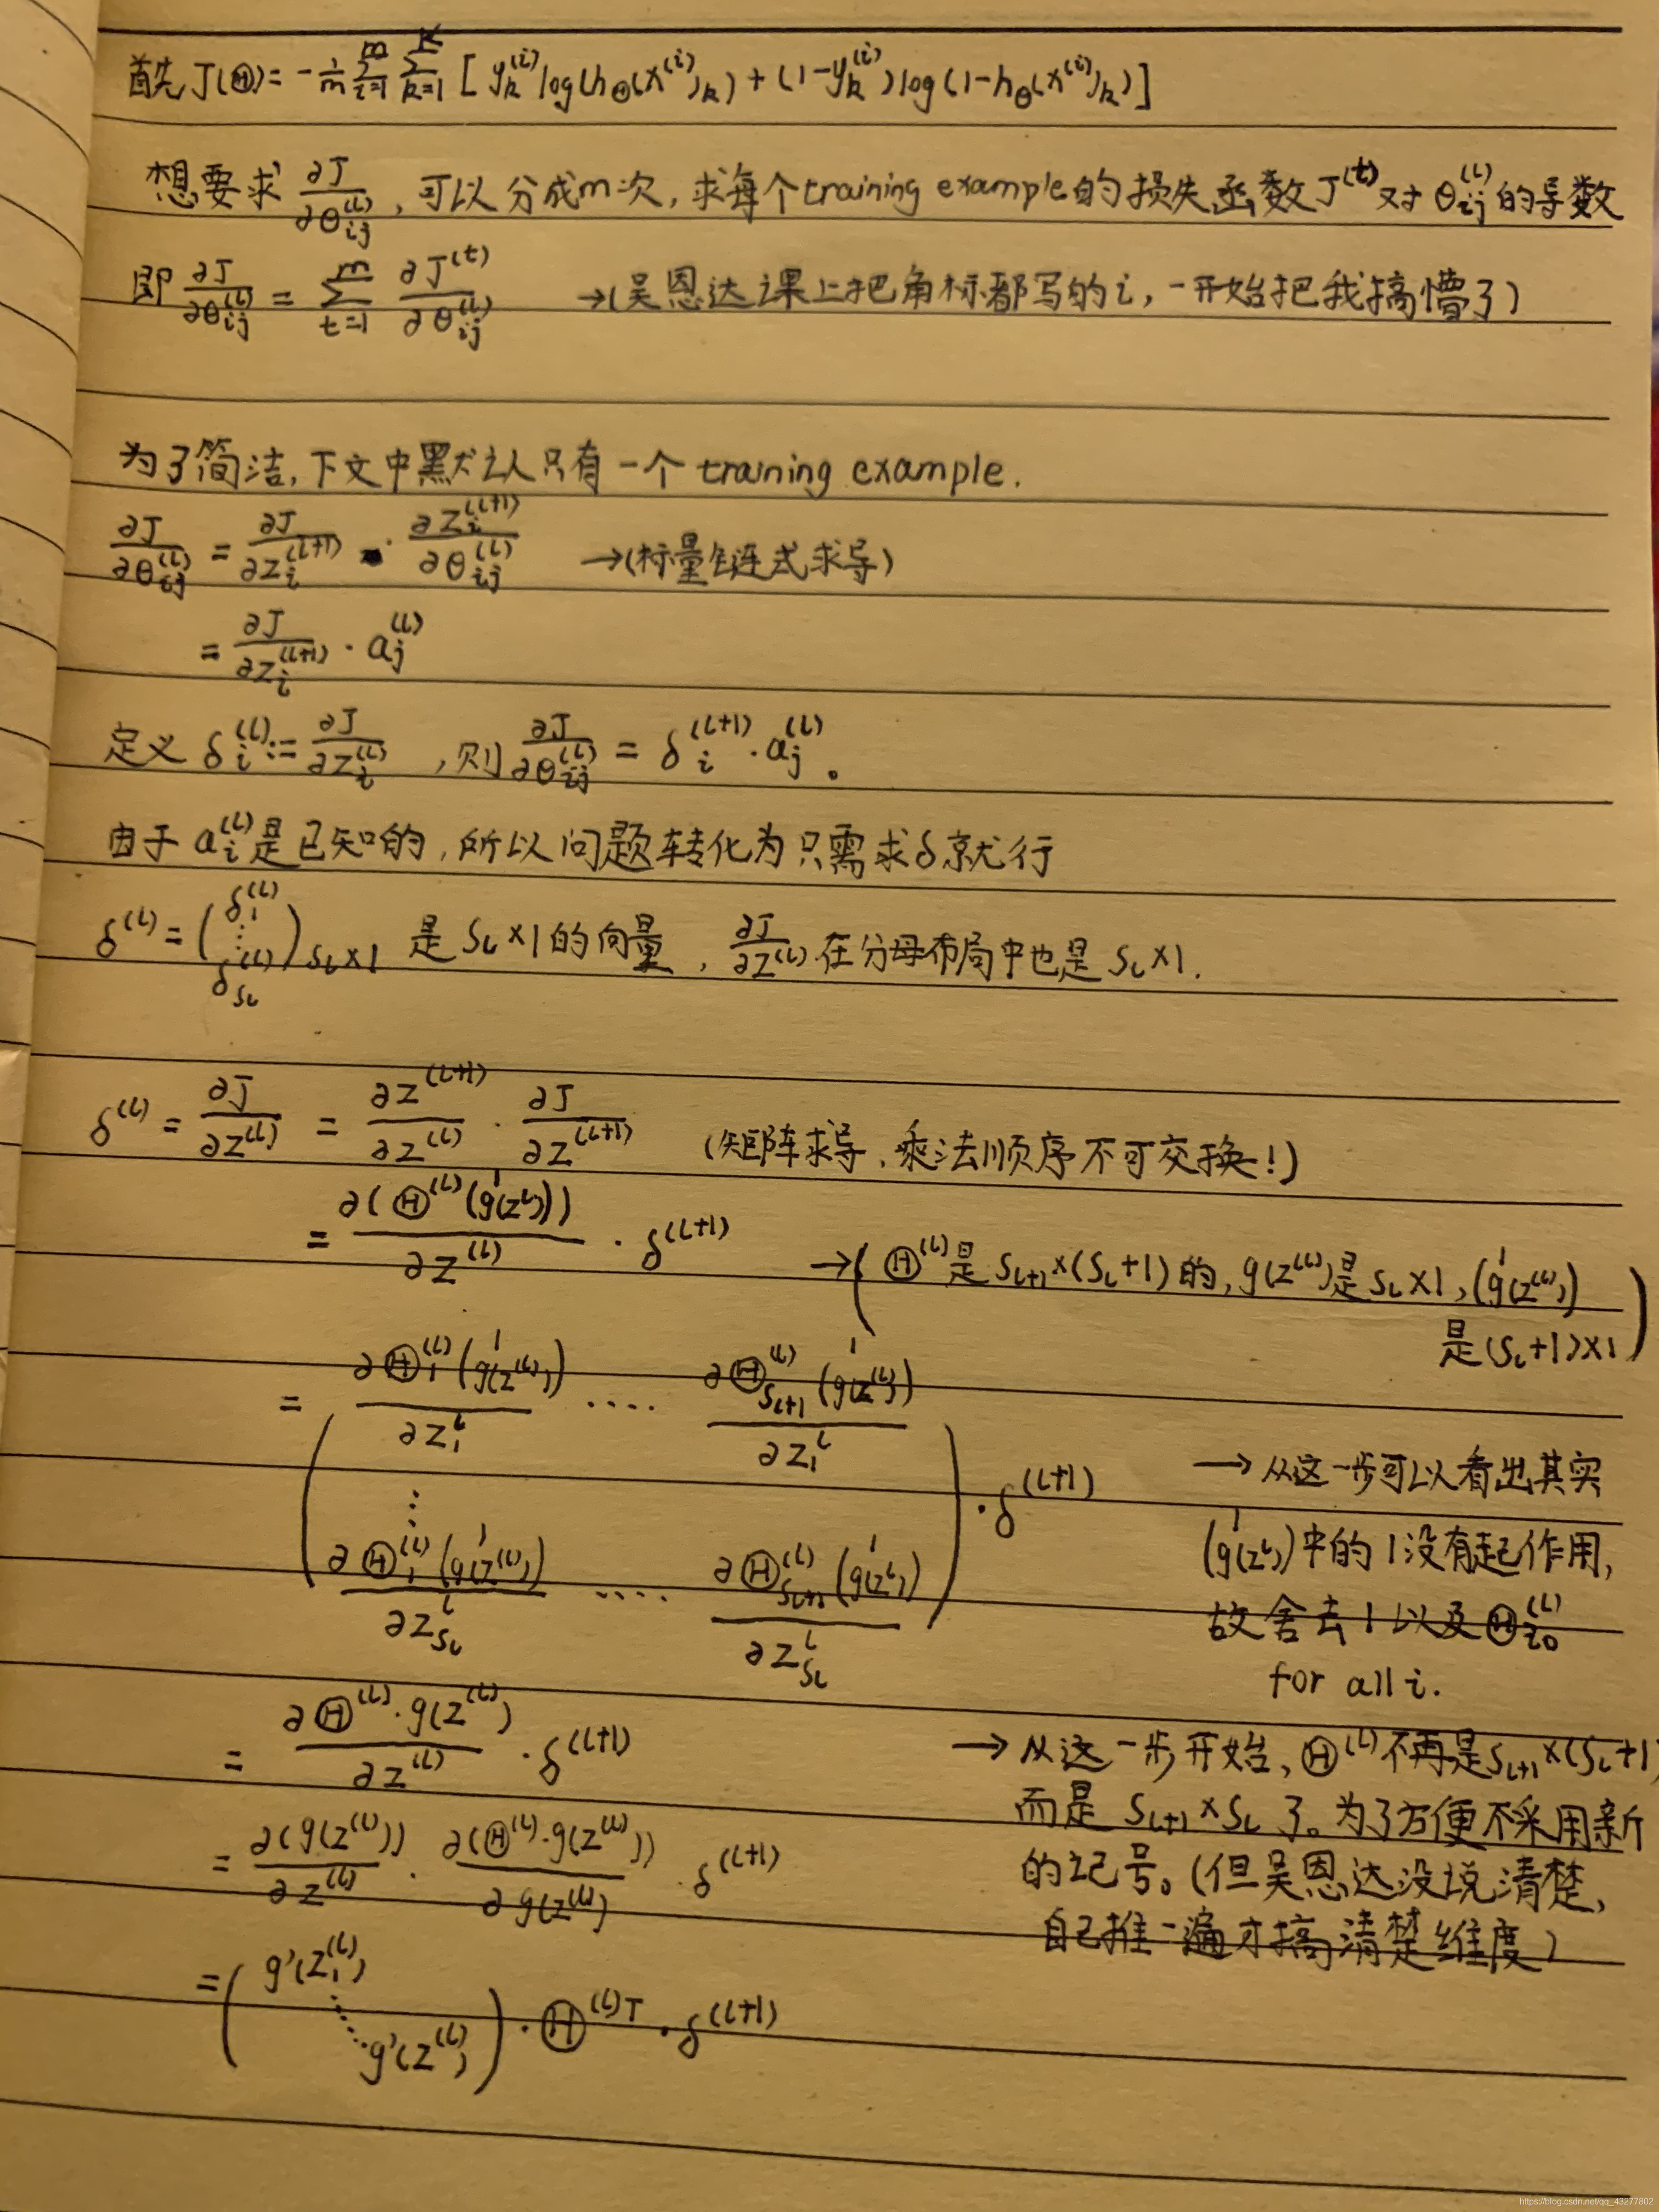 首先 J(Θ) = -1/m Σ_{i=1}^{m} Σ_{k=1}^{K} [ y_k^{(i)} log(h_Θ(x^{(i)})_k) + (1-y_k^{(i)}) log(1-h_Θ(x^{(i)})_k) ]
想要求 ∂J/∂θ_{ij}^{(l)}, 可以分成m次, 求每个training example的损失函数 J^{(t)} 对 θ_{ij}^{(l)} 的导数
即 ∂J/∂θ_{ij}^{(l)} = Σ_{t=1}^{m} ∂J^{(t)}/∂θ_{ij}^{(l)} →(吴恩达课上把角标都写的i, 一开始把我搞懵了)
为了简洁, 下文中默认只有一个 training example.
∂J/∂θ_{ij}^{(l)} = ∂J/∂z_i^{(l+1)} · ∂z_i^{(l+1)}/∂θ_{ij}^{(l)} →(标量链式求导)
= ∂J/∂z_i^{(l+1)} · a_j^{(l)}
定义 δ_i^{(l)} := ∂J/∂z_i^{(l)}, 则 ∂J/∂θ_{ij}^{(l)} = δ_i^{(l+1)} · a_j^{(l)}。
由于 a_i^{(l)} 是已知的, 所以问题转化为只需求δ就行
δ^{(l)} = (δ_1^{(l)} ⋮ δ_{s_l}^{(l)})_{s_l×1} 是 s_l×1 的向量, ∂J/∂z^{(l)} 在分母布局中也是 s_l×1.
δ^{(l)} = ∂J/∂z^{(l)} = ∂z^{(l+1)}/∂z^{(l)} · ∂J/∂z^{(l+1)} (矩阵求导, 乘法顺序不可交换!)
= ∂(Θ^{(l)} (1 g(z^l)))/∂z^{(l)} · δ^{(l+1)} →( Θ^{(l)} 是 s_{l+1}×(s_l+1) 的, g(z^{(l)}) 是 s_l×1, (1 g(z^{(l)}))
是(s_l+1)×1 )
= ( ∂Θ_1^{(l)} (1 g(z^{(l)}))/∂z_1^l ···· ∂Θ_{s_{l+1}}^{(l)} (1 g(z^{(l)}))/∂z_1^l
⋮
∂Θ_1^{(l)} (1 g(z^{(l)}))/∂z_{s_l}^l ···· ∂Θ_{s_{l+1}}^{(l)} (1 g(z^l))/∂z_{s_l}^l ) · δ^{(l+1)}
→ 从这一步可以看出其实
(1 g(z^l)) 中的1没有起作用,
故舍去1以及Θ_{i0}^{(l)}
for all i.
= ∂Θ^{(l)}·g(z^{(l)})/∂z^{(l)} · δ^{(l+1)}
→ 从这一步开始, Θ^{(l)} 不再是 s_{l+1}×(s_l+1)
而是 s_{l+1}×s_l 了。为了方便不采用新
的记号。(但吴恩达没说清楚,
自己推一遍才搞清楚维度)
= ∂(g(z^{(l)}))/∂z^{(l)} · ∂(Θ^{(l)}·g(z^{(l)}))/∂g(z^{(l)}) · δ^{(l+1)}
= ( g'(z_1^{(l)}) ⋱ g'(z^{(l)}) ) · Θ^{(l)T} · δ^{(l+1)}
https://blog.csdn.net/qq_43277802